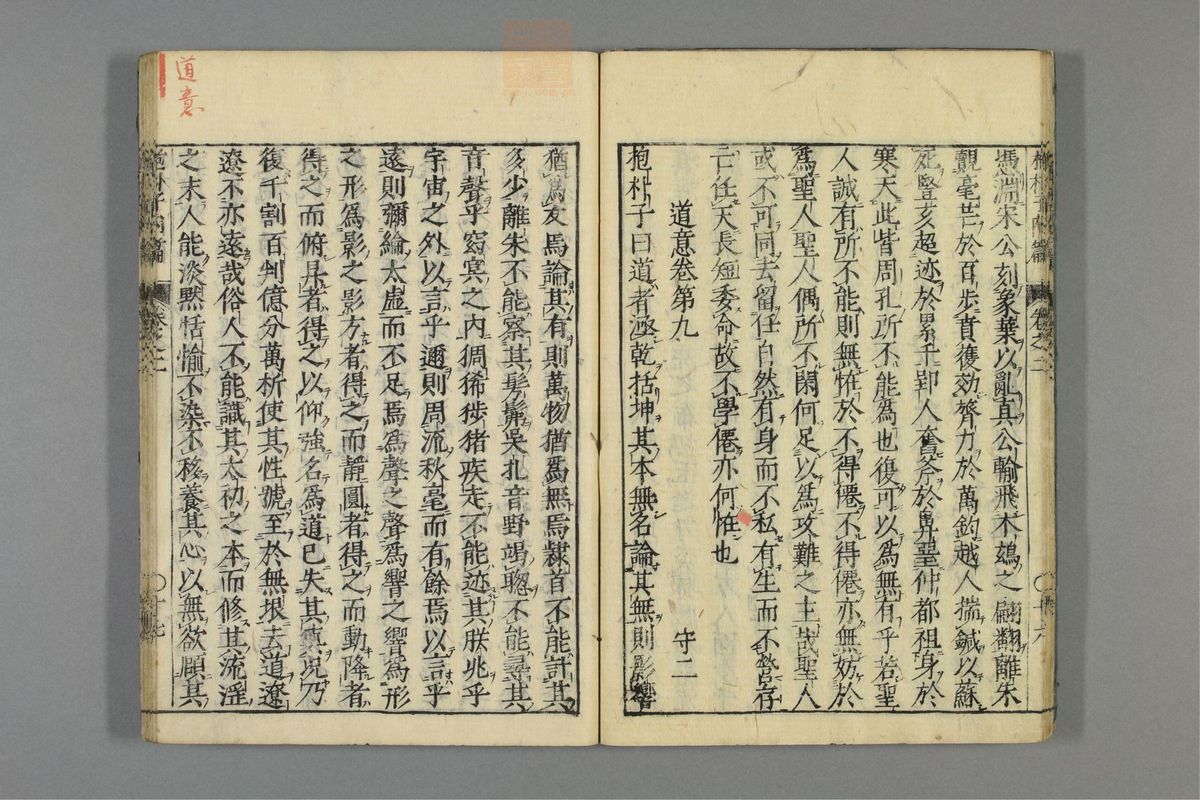 抱朴子內篇 卷之二 〇十六
憑淵宋公刻象葉以亂真公輸飛木鵄之翩翾離朱
覿毫芒於百步賁獲効膂力於萬鈞越人揣鍼以蘇
死豎亥超迹於累千郢人奮斧於鼻堊仲都袒身於
寒天此皆周孔所不能為也復可以為無有乎若聖
人誠有所不能則無恠於不得僊不得僊亦無妨於
為聖人聖人偶所不閑何足以為攻難之主哉聖人
或不可同去留任自然有身而不私有生而不營存
亡任天長短委命故不學僊亦何恠也
道意卷第九 守二
抱朴子曰道者涵乾括坤其本無名論其無則影響
猶為有焉論其有則萬物猶為無焉隸首不能計其
多少離朱不能察其髣髴吳札晉野竭聰不能尋其
音聲乎窈冥之內猲狶涉豬疾走不能迹其朕兆乎
宇宙之外以言乎邇則周流秋毫而有餘焉以言乎
遠則彌綸太虛而不足焉為聲之聲為響之響為形
之形為影之影方者得之而靜圓者得之而動降者
得之而俯昇者得之以仰強名為道已失其真況乃
復千割百判億分萬析使其性號至於無垠去道遼
遼不亦遠哉俗人不能識其太初之本而修其流淫
之末人能淡默恬愉不染不移養其心以無欲頤其
抱朴子內篇 卷之二 〇十七
道意